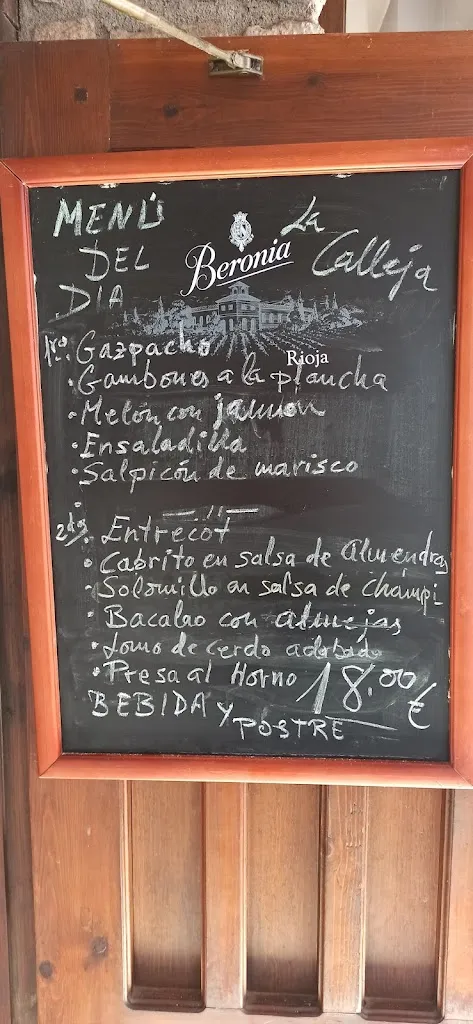 MENÚ
DEL
DIA
Beronia
Rioja
La
Calleja
1ros. Gazpacho
· Gambones a la plancha
· Melón con jamon
· Ensaladilla
· Salpicón de marisco
— 11 —
2dos. Entrecot
· Cabrito en salsa de Almendras
· Solomillo en salsa de champi
· Bacalao con almejas
· Lomo de cerdo adobado
· Presa al Horno 18.00 €
BEBIDA Y POSTRE